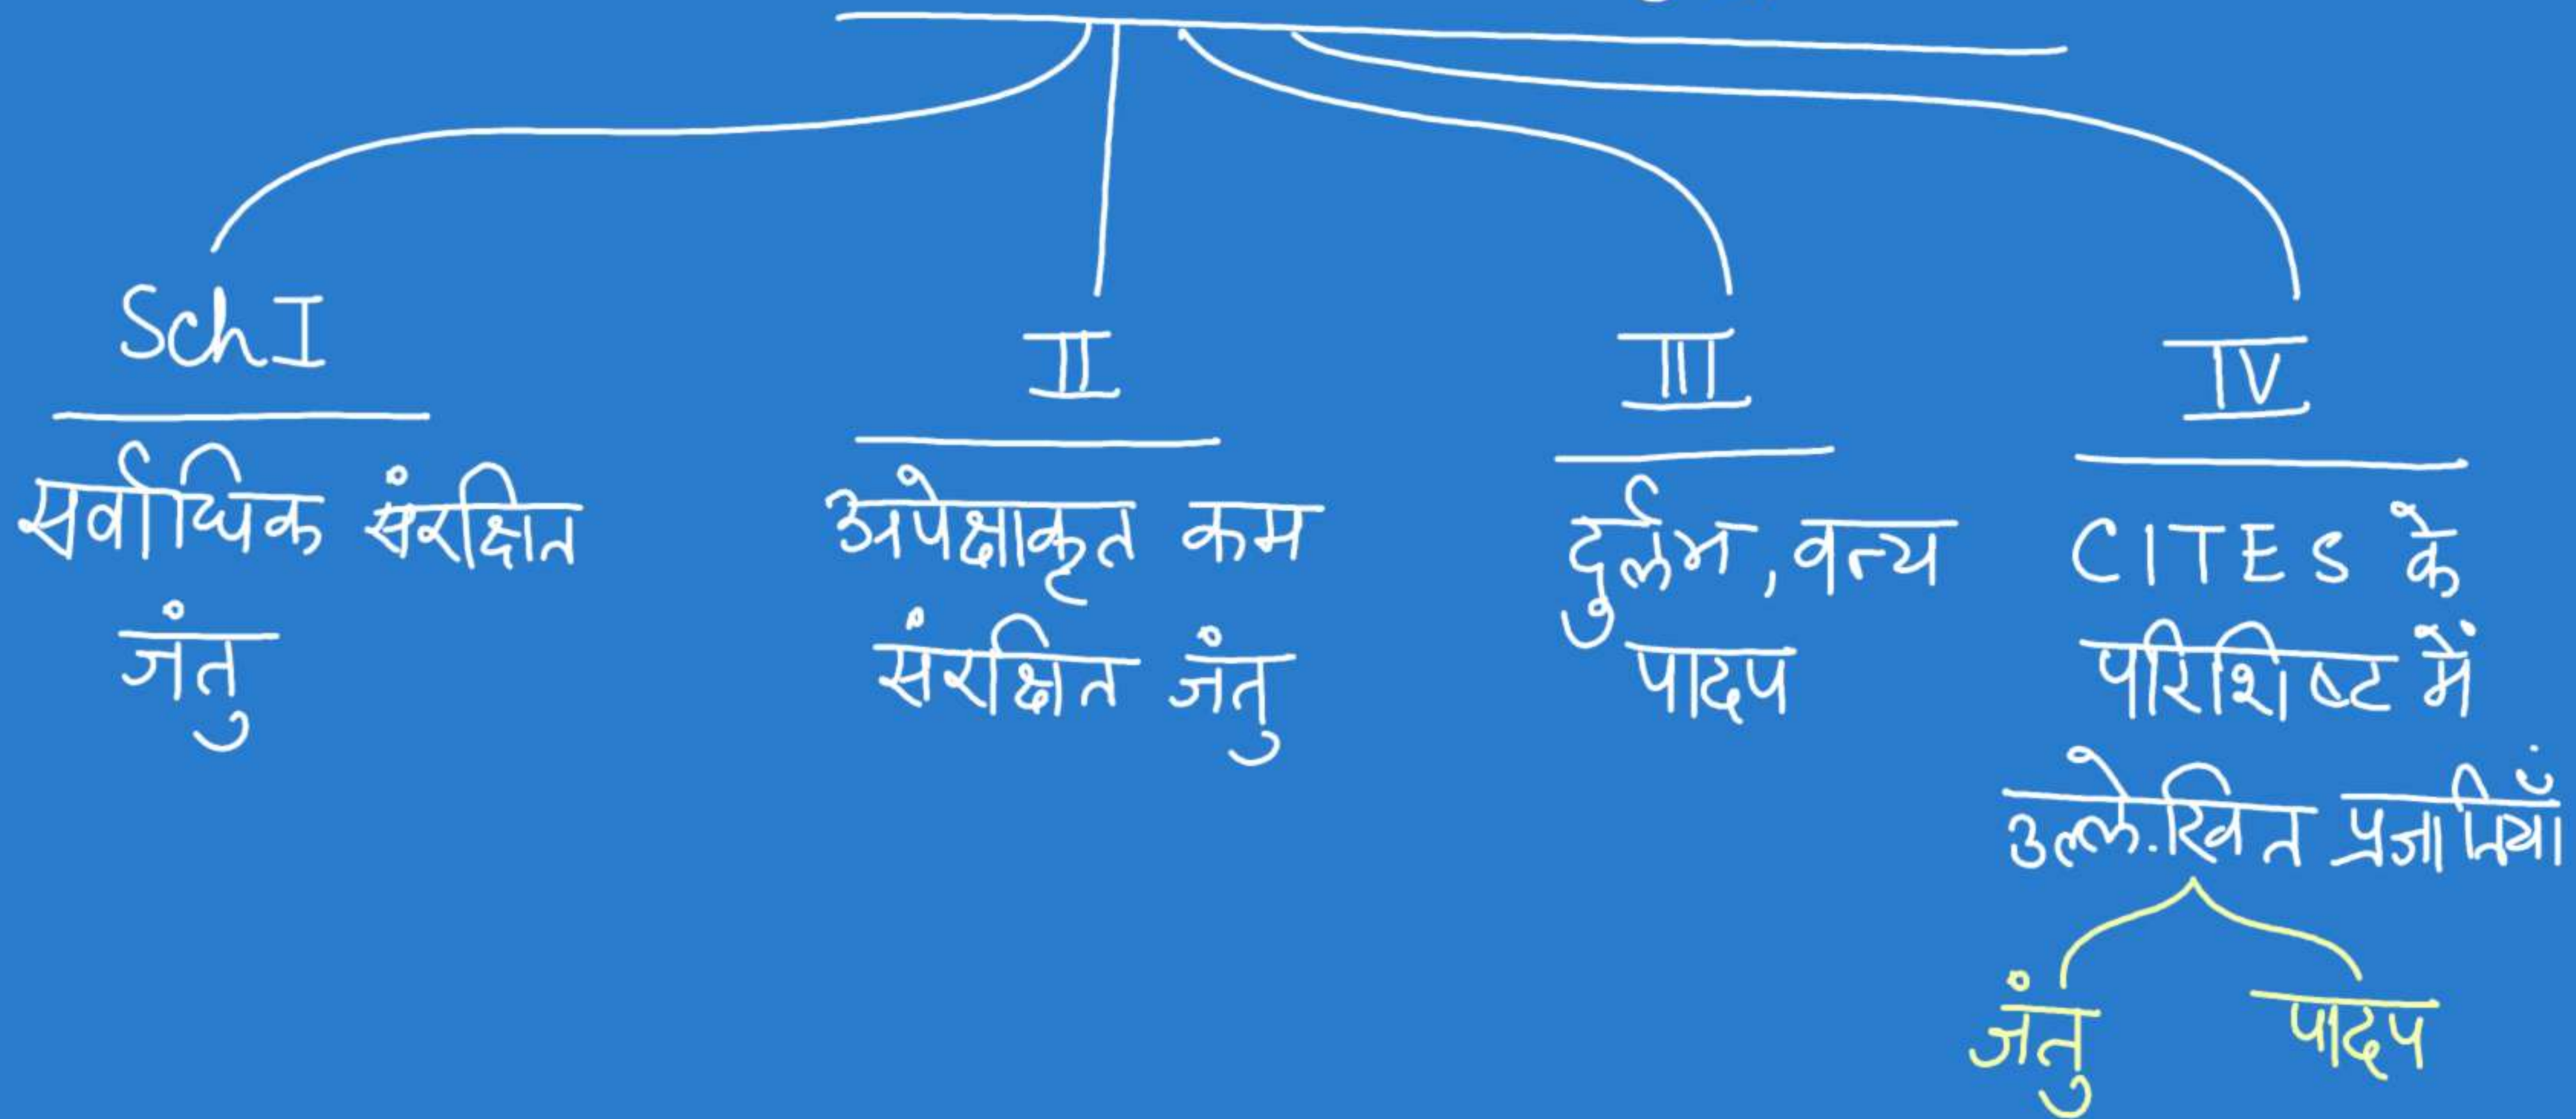 Sch I
सर्वाधिक संरक्षित
जंतु
II
अपेक्षाकृत कम
संरक्षित जंतु
III
दुर्लभ, वन्य
पादप
IV
CITES के
परिशिष्ट में
उल्लेखित प्रजातियाँ
जंतु पादप